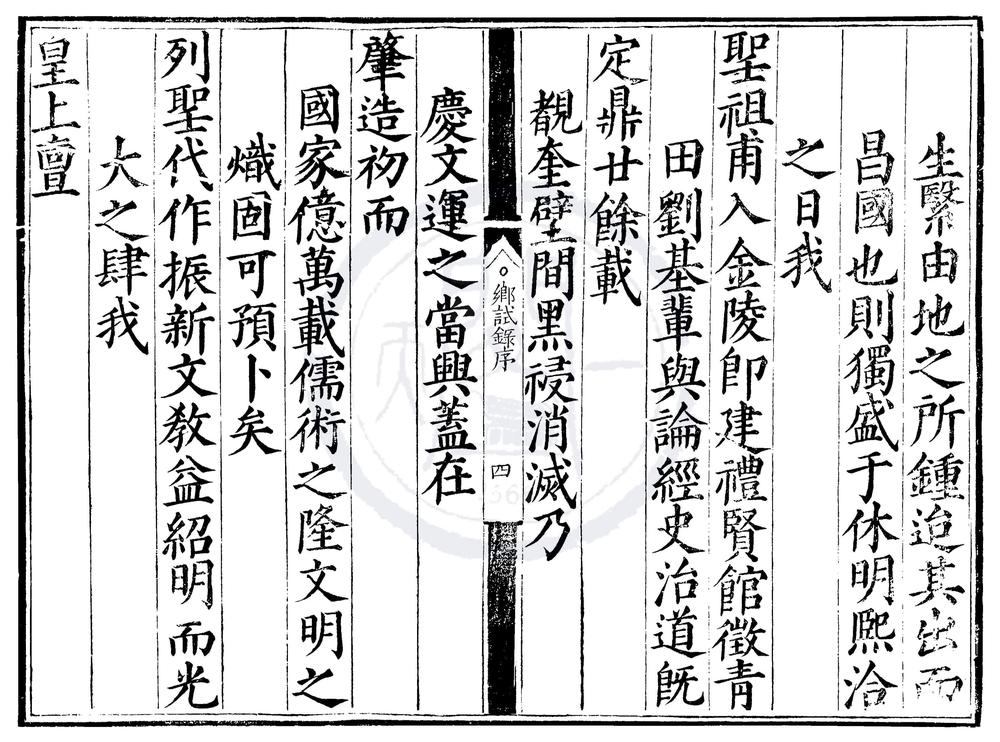 生繄由地之所鍾迨其出而
昌國也則獨盛于休明熙洽
之日我
聖祖甫入金陵卽建禮賢館徵青
田劉基輩與論經史治道旣
定鼎廿餘載
覩奎壁間黑祲消滅乃
鄉試錄序
四
慶文運之當興蓋在
肇造初而
國家億萬載儒術之隆文明之
熾固可預卜矣
列聖代作振新文敎益紹明而光
大之肆我
皇上亶